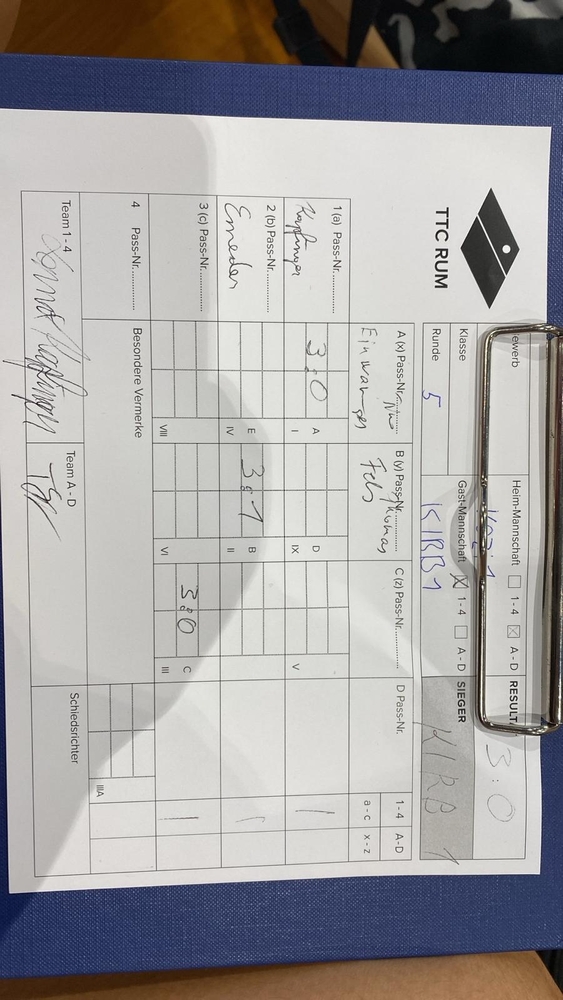 TTC RUM
ewerb
Heim-Mannschaft ☐ 1 - 4 ☒ A - D
RESULT
3 : 0
Klasse
Gast-Mannschaft ☒ 1 - 4 ☐ A - D
SIEGER
Runde 5
KIRB1
KIRB 1
1 (a) Pass-Nr.
A (x) Pass-Nr.
B (y) Pass-Nr. Thomas
C (z) Pass-Nr.
D Pass-Nr.
1 - 4 A - D
Fels
a - c x - z
3:0
A
I
D
IX
V
I
2 (b) Pass-Nr.
Emeder
E
IV
3:1
B
II
I
3 (c) Pass-Nr.
VIII
VI
3:0
C
III
I
4 Pass-Nr.
Besondere Vermerke
IIIA
Team 1 - 4
Team A - D
Schiedsrichter